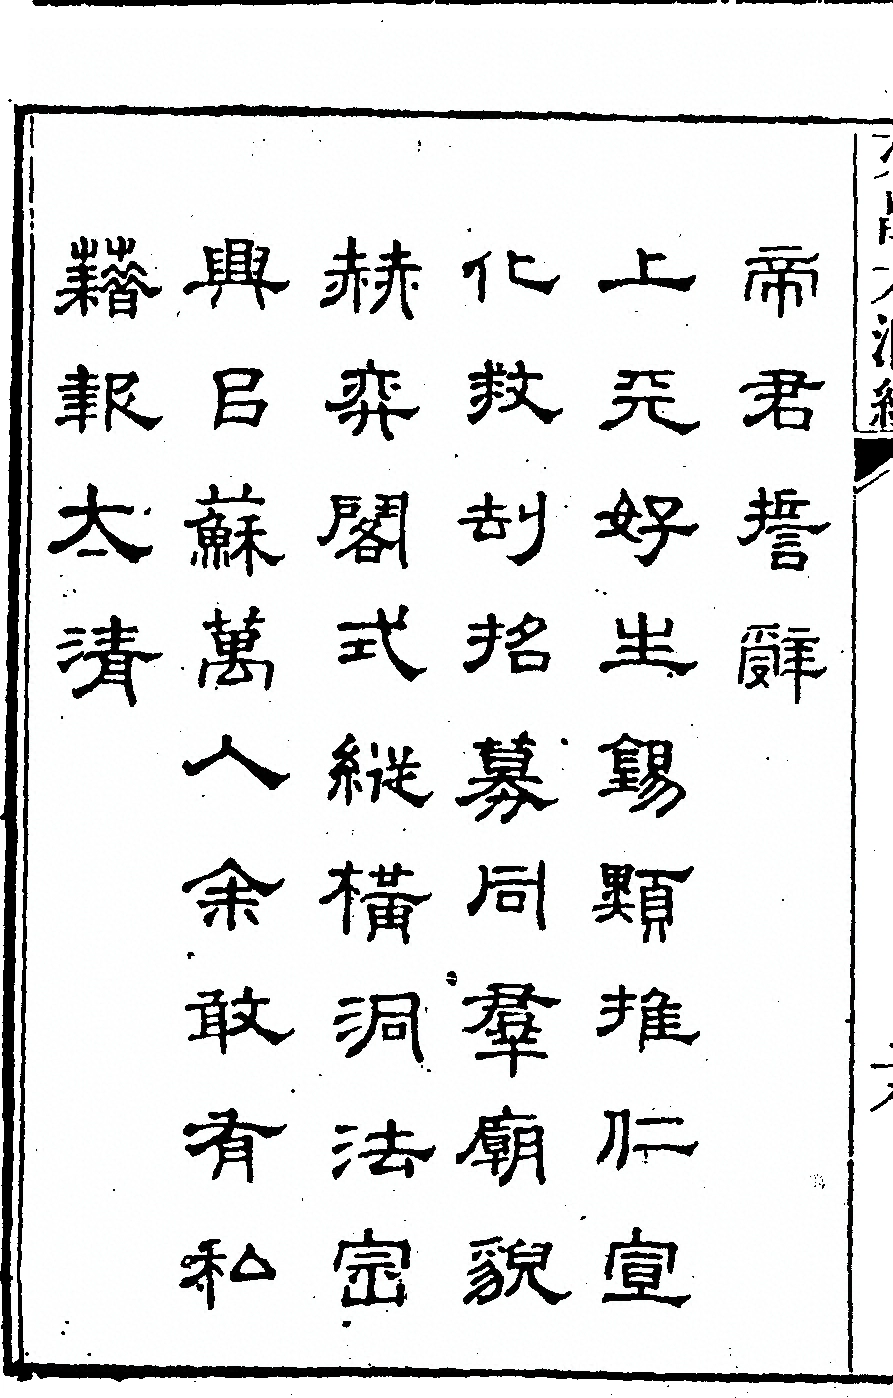 帝君誓辭
上兲好生錫類推仁宣
化救刦招募同羣廟貌
赫弈閣式縱橫洞法崈
興㠯蘇萬人余敢有私
藉報太清